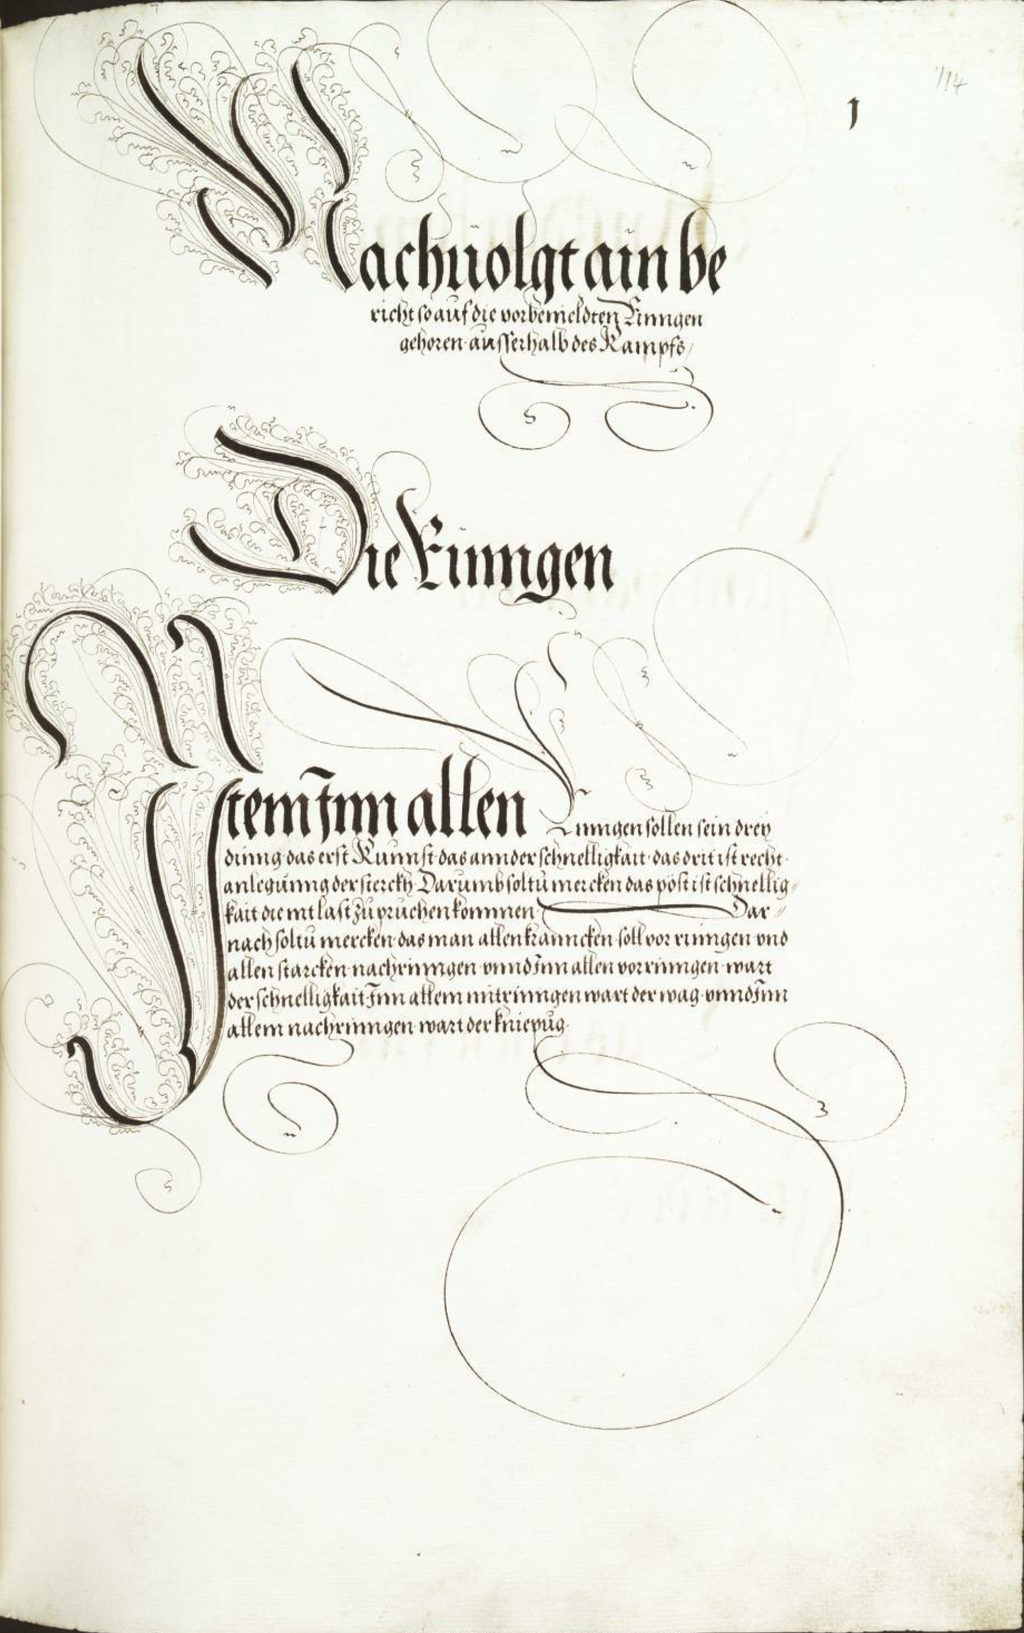 114
1
Nachuolgt ain be
richt so auf die vorbemeldten Rinngen
gehoren ausserhalb des Kampfs
Die Rinngen
Item Inn allen Rinngen sollen sein drey
dinng das erst Kunnst das annder schnelligkait das drit ist recht
anlegunng der sterckh Darumb soltu mercken das post ist schnellig
kait die nit last zu pruchen kommen Dar
nach soltu mercken das man allen kranncken soll vor rinngen vnd
allen starcken nachrinngen vnnd Inn allen vorrinngen wart
der schnelligkait Inn allem mitrinngen wart der wag vnnd Inn
allem nachrinngen wart der kniepug